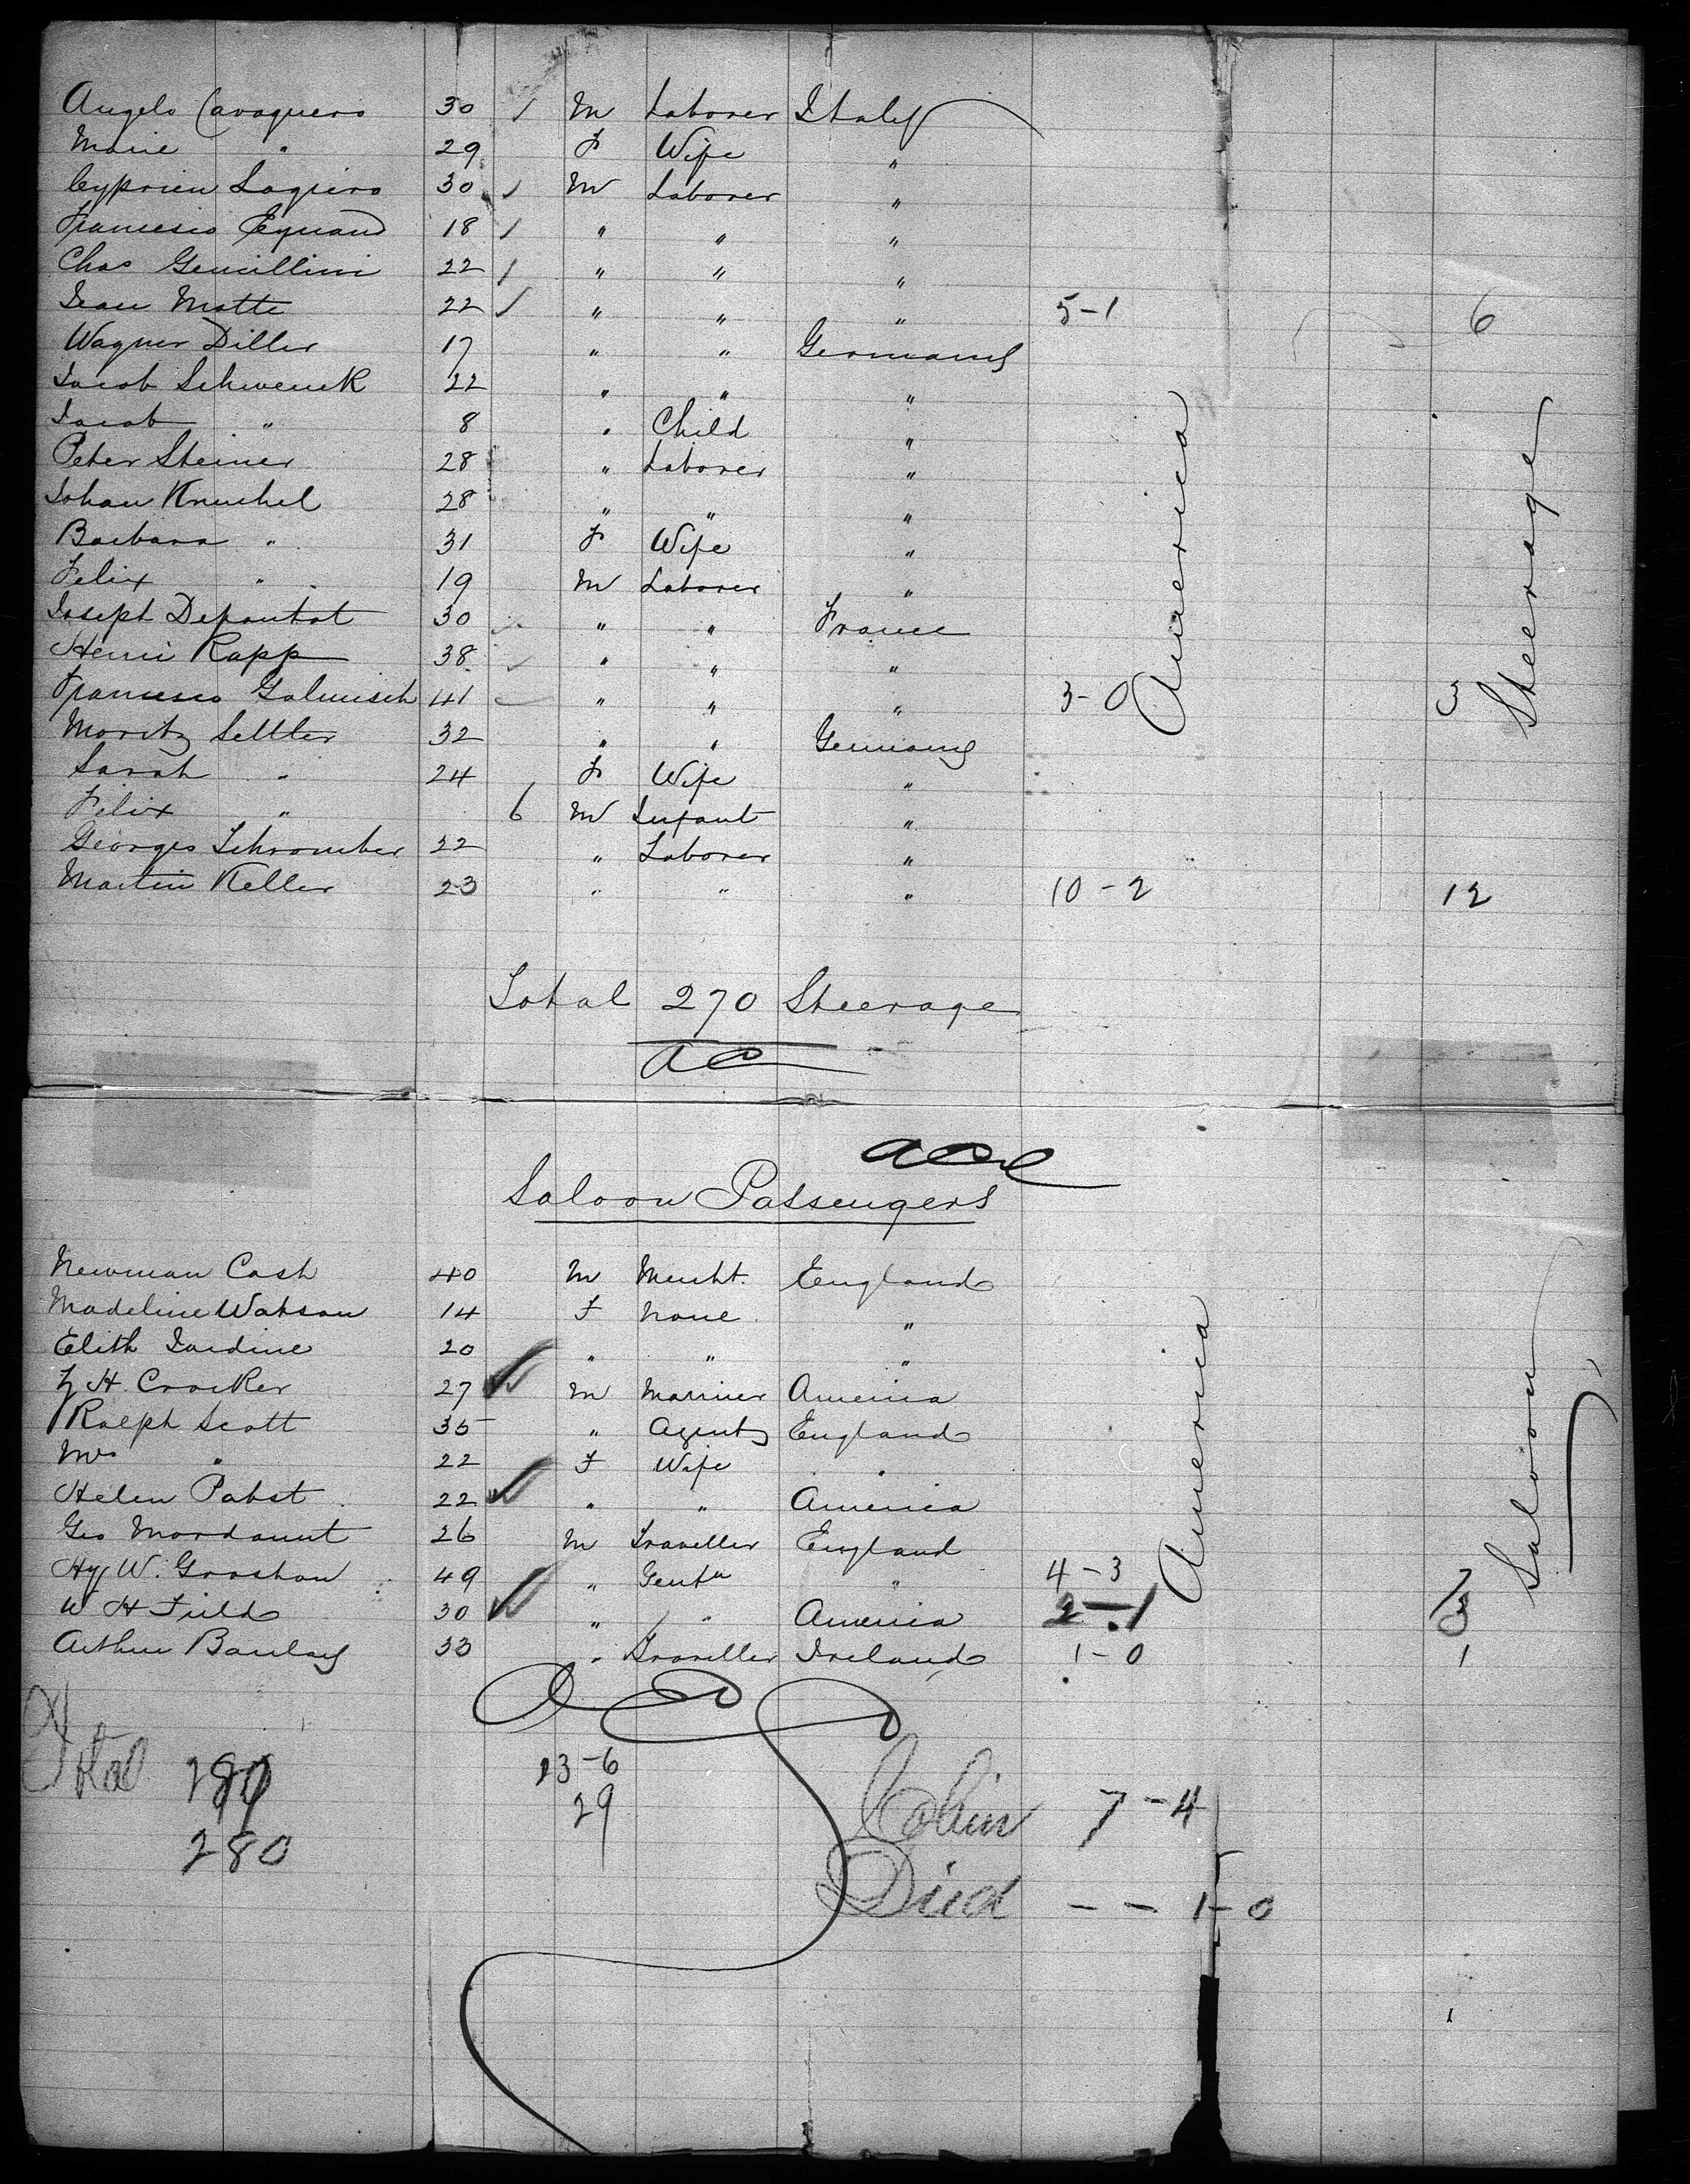 Angelo Cavaguero 30 / M Laborer Italy
Marie " 29 F Wife "
Cyprien Lagiero 30 / M Laborer "
Francesco Eynaud 18 / " " "
Chas Gemillini 22 / " " "
Jean Motte 22 / " " " 5-1 6
Wagner Diller 17 " " Germany
Jacob Schwenck 22 " " "
Jacob " 8 " Child "
Peter Steiner 28 " Laborer "
Johan Knuchel 28 " " "
Barbara " 31 F Wife "
Felix " 19 M Laborer "
Joseph 30 " " France
Henri Rapp 38 " " "
Francesco Galmisch 41 " " " 3-0 3
Moritz 32 " " Germany
Sarah " 24 F Wife "
Felix " 6 M Infant "
Georges 22 " Laborer "
Martin Keller 23 " " " 10-2 12
America
Steerage
Total 270 Steerage
Saloon Passengers
Newman Cash 40 M Mercht. England
Madeline Watson 14 F None "
Edith Jardine 20 " " "
H. Crocker 27 M Marriner America
Ralph Scott 35 " Agent England
Mrs " 22 F Wife "
Helen Pabst 22 " " America
Geo Mordaunt 26 M Traveller England
Hy W. Groshon 49 " Gentn " 4-3 7
W H Field 30 " " America 2-1 3
Arthur Barclay 33 " Traveller Ireland 1-0 1
America
Saloon
Total
280
23-6
29
Cabin 7-4
Died - - 1-0